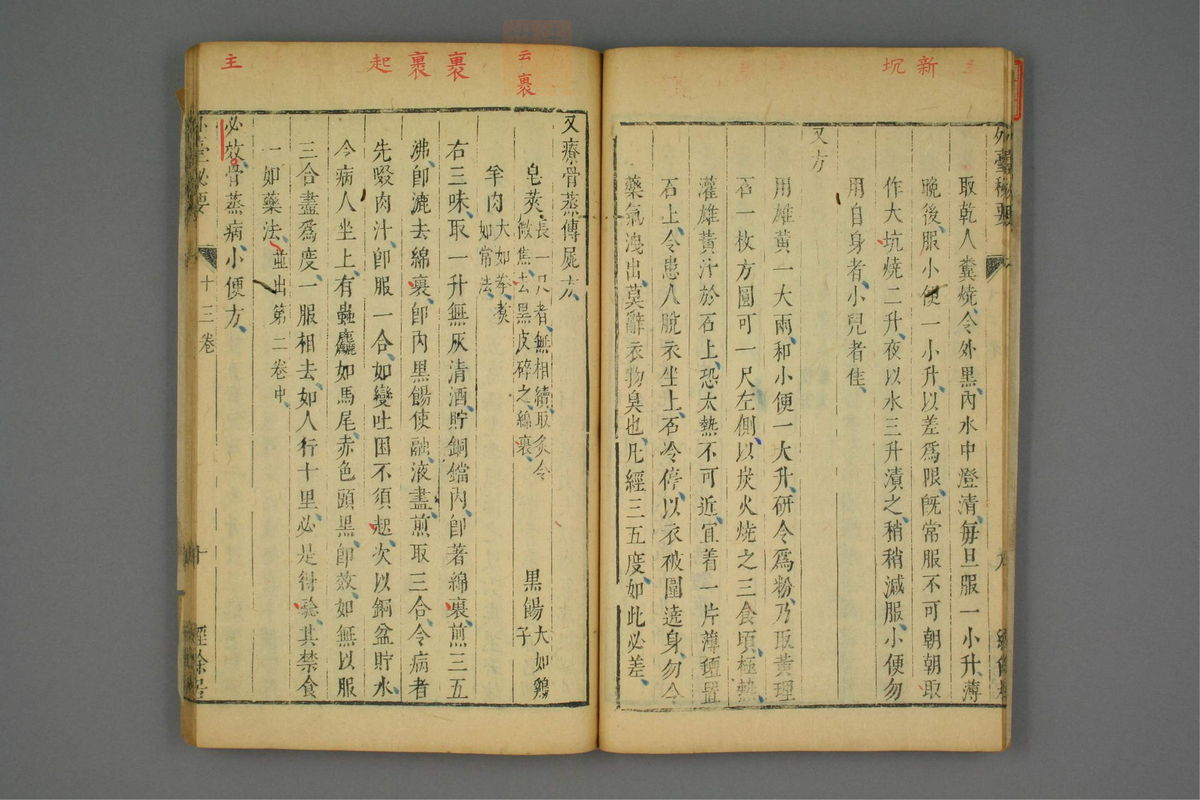 新
坑
外臺秘要
取乾人糞燒令外黑內水中澄清每旦服一小升薄
晚後服小便一小升以差爲限旣常服不可朝朝取
作大坑燒二升夜以水三升漬之稍稍減服小便勿
用自身者小兒者佳
又方
用雄黃一大兩和小便一大升研令爲粉乃取黃理
石一枚方圓可一尺左側以炭火燒之三食頃極熱
灌雄黃汁於石上恐太熱不可近宜着一片薄氈置
石上令患人脫衣坐上石冷停以衣被圍遶身勿令
藥氣洩出莫辭衣物臭也凡經三五度如此必差
云裹
裹
裹
起
主
又療骨蒸傳屍方
皂莢長一尺者無相續取炙令
微焦去黑皮碎之綿裹
黑餳大如鷄
子
羊肉大如拳煑
如常法
右三味取一升無灰清酒貯銅鐺內卽著綿裹煎三五
沸卽漉去綿裹卽內黑餳使融液盡煎取三合令病者
先啜肉汁卽服一合如變吐困不須起次以銅盆貯水
令病人坐上有蟲麤如馬尾赤色頭黑卽效如無以服
三合盡爲度一服相去如人行十里必是得驗其禁食
一如藥法並出第二卷中
必效骨蒸病小便方
外臺秘要
十三卷
十
經餘居